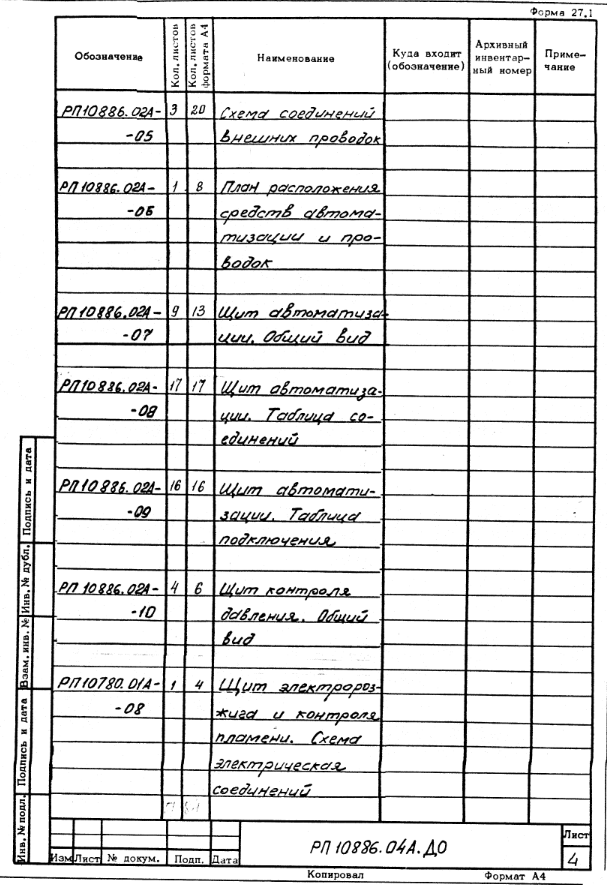 Форма 27.1
Обозначение
Кол. листов
Кол. листов формата А4
Наименование
Куда входит (обозначение)
Архивный инвентарный номер
Примечание
РП10886.02А- 3 20 Схема соединений
-05 внешних проводок
РП10886.02А- 1 8 План расположения
-06 средств автома-
тизации и про-
водок
РП10886.02А- 9 13 Щит автоматиза-
-07 ции. Общий вид
РП10886.02А- 17 17 Щит автоматиза-
-08 ции. Таблица со-
единений
РП10886.02А- 16 16 Щит автомати-
-09 зации. Таблица
подключения
РП 10886.02А- 4 6 Щит контроля
-10 давления. Общий
вид
РП10780.01А- 1 4 Щит электророз-
-08 жига и контроля
пламени. Схема
электрическая
соединений
Инв. № подл.
Подпись и дата
Взам. инв. №
Инв. № дубл.
Подпись и дата
Изм Лист № докум. Подп. Дата
РП 10886.04А.ДО
Лист
4
Копировал Формат А4